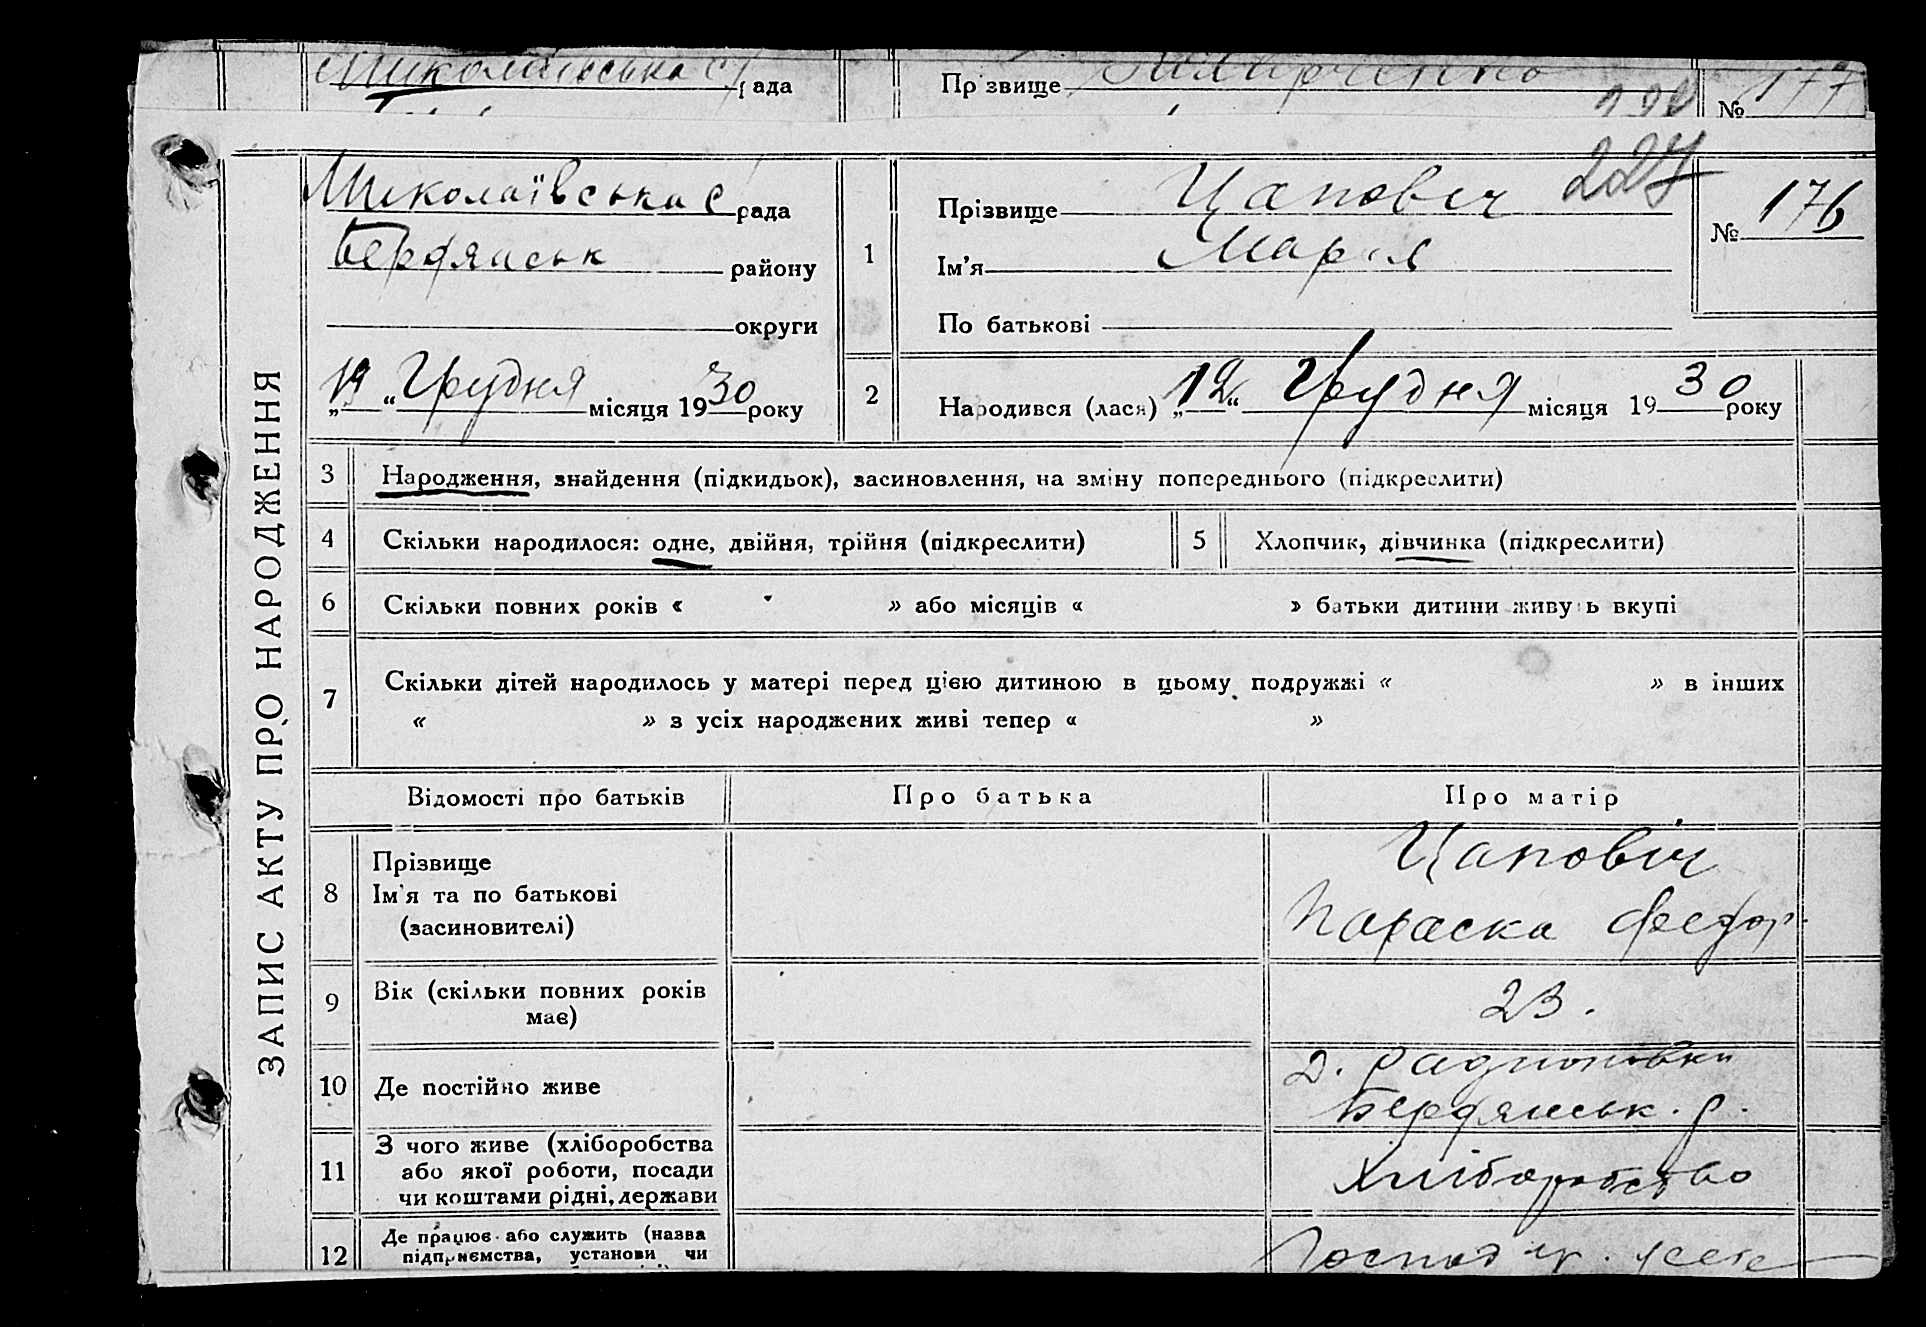 Миколаївська с/рада
Прізвище
№ 177
ЗАПИС АКТУ ПРО НАРОДЖЕННЯ
Миколаївська с рада
Бердянськ району
округи
„19“ Грудня місяця 1930 року
1
Прізвище Цаповіч
227
№ 176
Ім’я Марія
По батькові
2
Народився (лася) „12“ Грудня місяця 1930 року
3 Народження, знайдення (підкидьок), засиновлення, на зміну попереднього (підкреслити)
4 Скільки народилося: одне, двійня, трійня (підкреслити)
5 Хлопчик, дівчинка (підкреслити)
6 Скільки повних років « » або місяців « » батьки дитини живуть вкупі
7 Скільки дітей народилось у матері перед цією дитиною в цьому подружжі « » в інших
« » з усіх народжених живі тепер « »
Відомості про батьків Про батька Про матір
8 Прізвище
Ім’я та по батькові
(засиновителі)
Цаповіч
Параска Федор.
9 Вік (скільки повних років
має)
23.
10 Де постійно живе
Бердянськ. р.
11 З чого живе (хліборобства
або якої роботи, посади
чи коштами рідні, держави
Хліборобство
12 Де працює або служить (назва
підприємства, установи чи